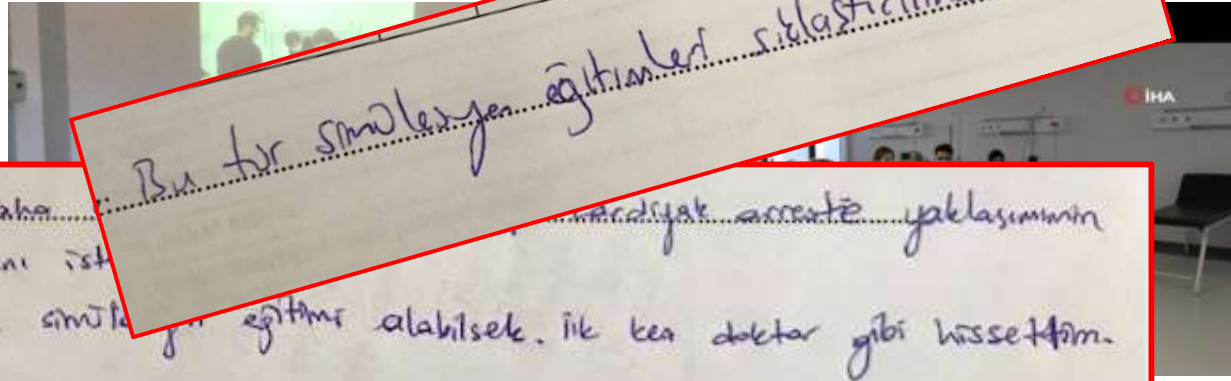 Bu tür simülasyon eğitimleri sıklaştırılma
İHA
aha
kardiyak arreste yaklaşımının
nı ist
simüla eğitimi alabilsek. İlk kez doktor gibi hissettim.